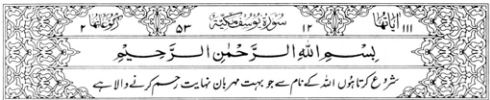 اٰیَاتُهَا ۱۱۱ ۱۲ سُوْرَةُ يُوْسُفَ مَكِّيَّةٌ ۵۳ رُكُوْعَاتُهَا ۲
بِسْمِ اللّٰهِ الرَّحْمٰنِ الرَّحِيْمِ
شروع کرتا ہوں اللہ کے نام سے جو بہت مہربان نہایت رحم کرنے والا ہے